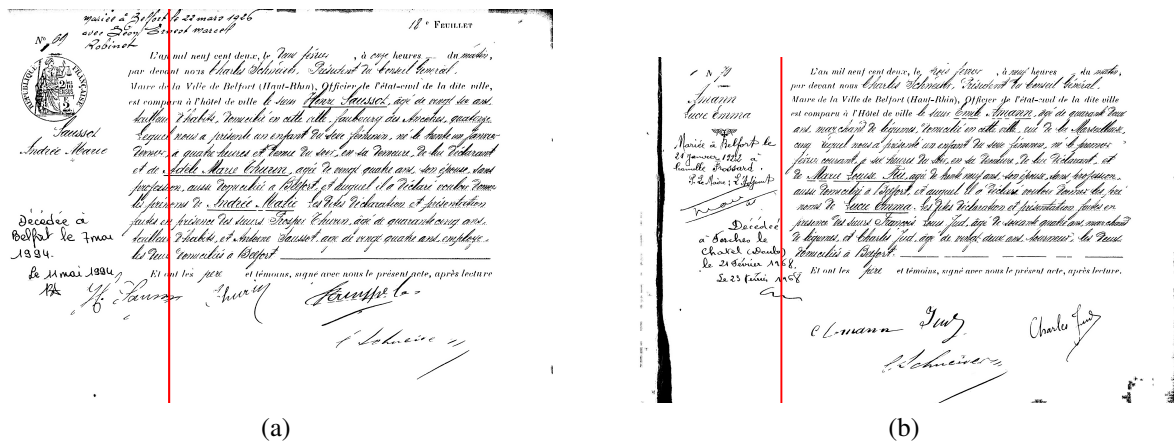 mariée à Belfort le 22 mars 1926
avec Léon Ernest Marcel
Robinet
18e FEUILLET
No 69
RÉPUBLIQUE FRANÇAISE
Saussot
Andrée Marie
L'an mil neuf cent deux, le deux février, à onze heures du matin,
par devant nous Charles Schneider, Président du Conseil Général,
Maire de la Ville de Belfort (Haut-Rhin), Officier de l'état-civil de la dite ville
est comparu à l'hôtel de ville le sieur Henri Saussot, âgé de vingt six ans,
tailleur d'habits, domicilié en cette ville, faubourg des Ancêtres, quatorze,
lequel nous a présenté un enfant du sexe féminin, né le trente un janvier
dernier, à quatre heures et demie du soir, en sa demeure, de lui déclarant
et de Adèle Marie, âgée de vingt quatre ans, son épouse, sans
profession, aussi domiciliée à Belfort, et auquel il a déclaré vouloir donner
les prénoms de Andrée Marie. Les dites déclaration et présentation
faites en présence des sieurs Prosper, âgé de quarante cinq ans,
tailleur d'habits, et Antoine Saussot, âgé de vingt quatre ans, employé,
les deux domiciliés à Belfort.
Et ont les père et témoins, signé avec nous le présent acte, après lecture
Décédée à
Belfort le 7 mai
1994.
Le 11 mai 1994
Schneider
(a)
No 70
Amann
Lucie Emma
Mariée à Belfort le
21 janvier 1922 à
Décédée
à Torches le
Chatel (Doubs)
le 21 Février 1968.
Le 23 Février 1968
L'an mil neuf cent deux, le trois février, à neuf heures du matin,
par devant nous Charles Schneider, Président du Conseil Général,
Maire de la Ville de Belfort (Haut-Rhin), Officier de l'état-civil de la dite ville
est comparu à l'Hôtel de ville le sieur Emile Amann, âgé de quarante deux
ans, marchand de légumes, domicilié en cette ville, rue de la Marseillaise,
cinq, lequel nous a présenté un enfant du sexe féminin, né le premier
février courant, à six heures du soir, en sa demeure, de lui déclarant, et
de Marie Louise, âgée de trente neuf ans, son épouse, sans profession,
aussi domiciliée à Belfort, et auquel il a déclaré vouloir donner les pré
noms de Lucie Emma. Les dites déclaration et présentation faites en
présence des sieurs François Louis Jud, âgé de soixante quatre ans, marchand
de légumes, et Charles Jud, âgé de vingt deux ans, tourneur, les deux
domiciliés à Belfort.
Et ont les père et témoins, signé avec nous le présent acte, après lecture.
E Amann Jud Charles Jud
Schneider
(b)